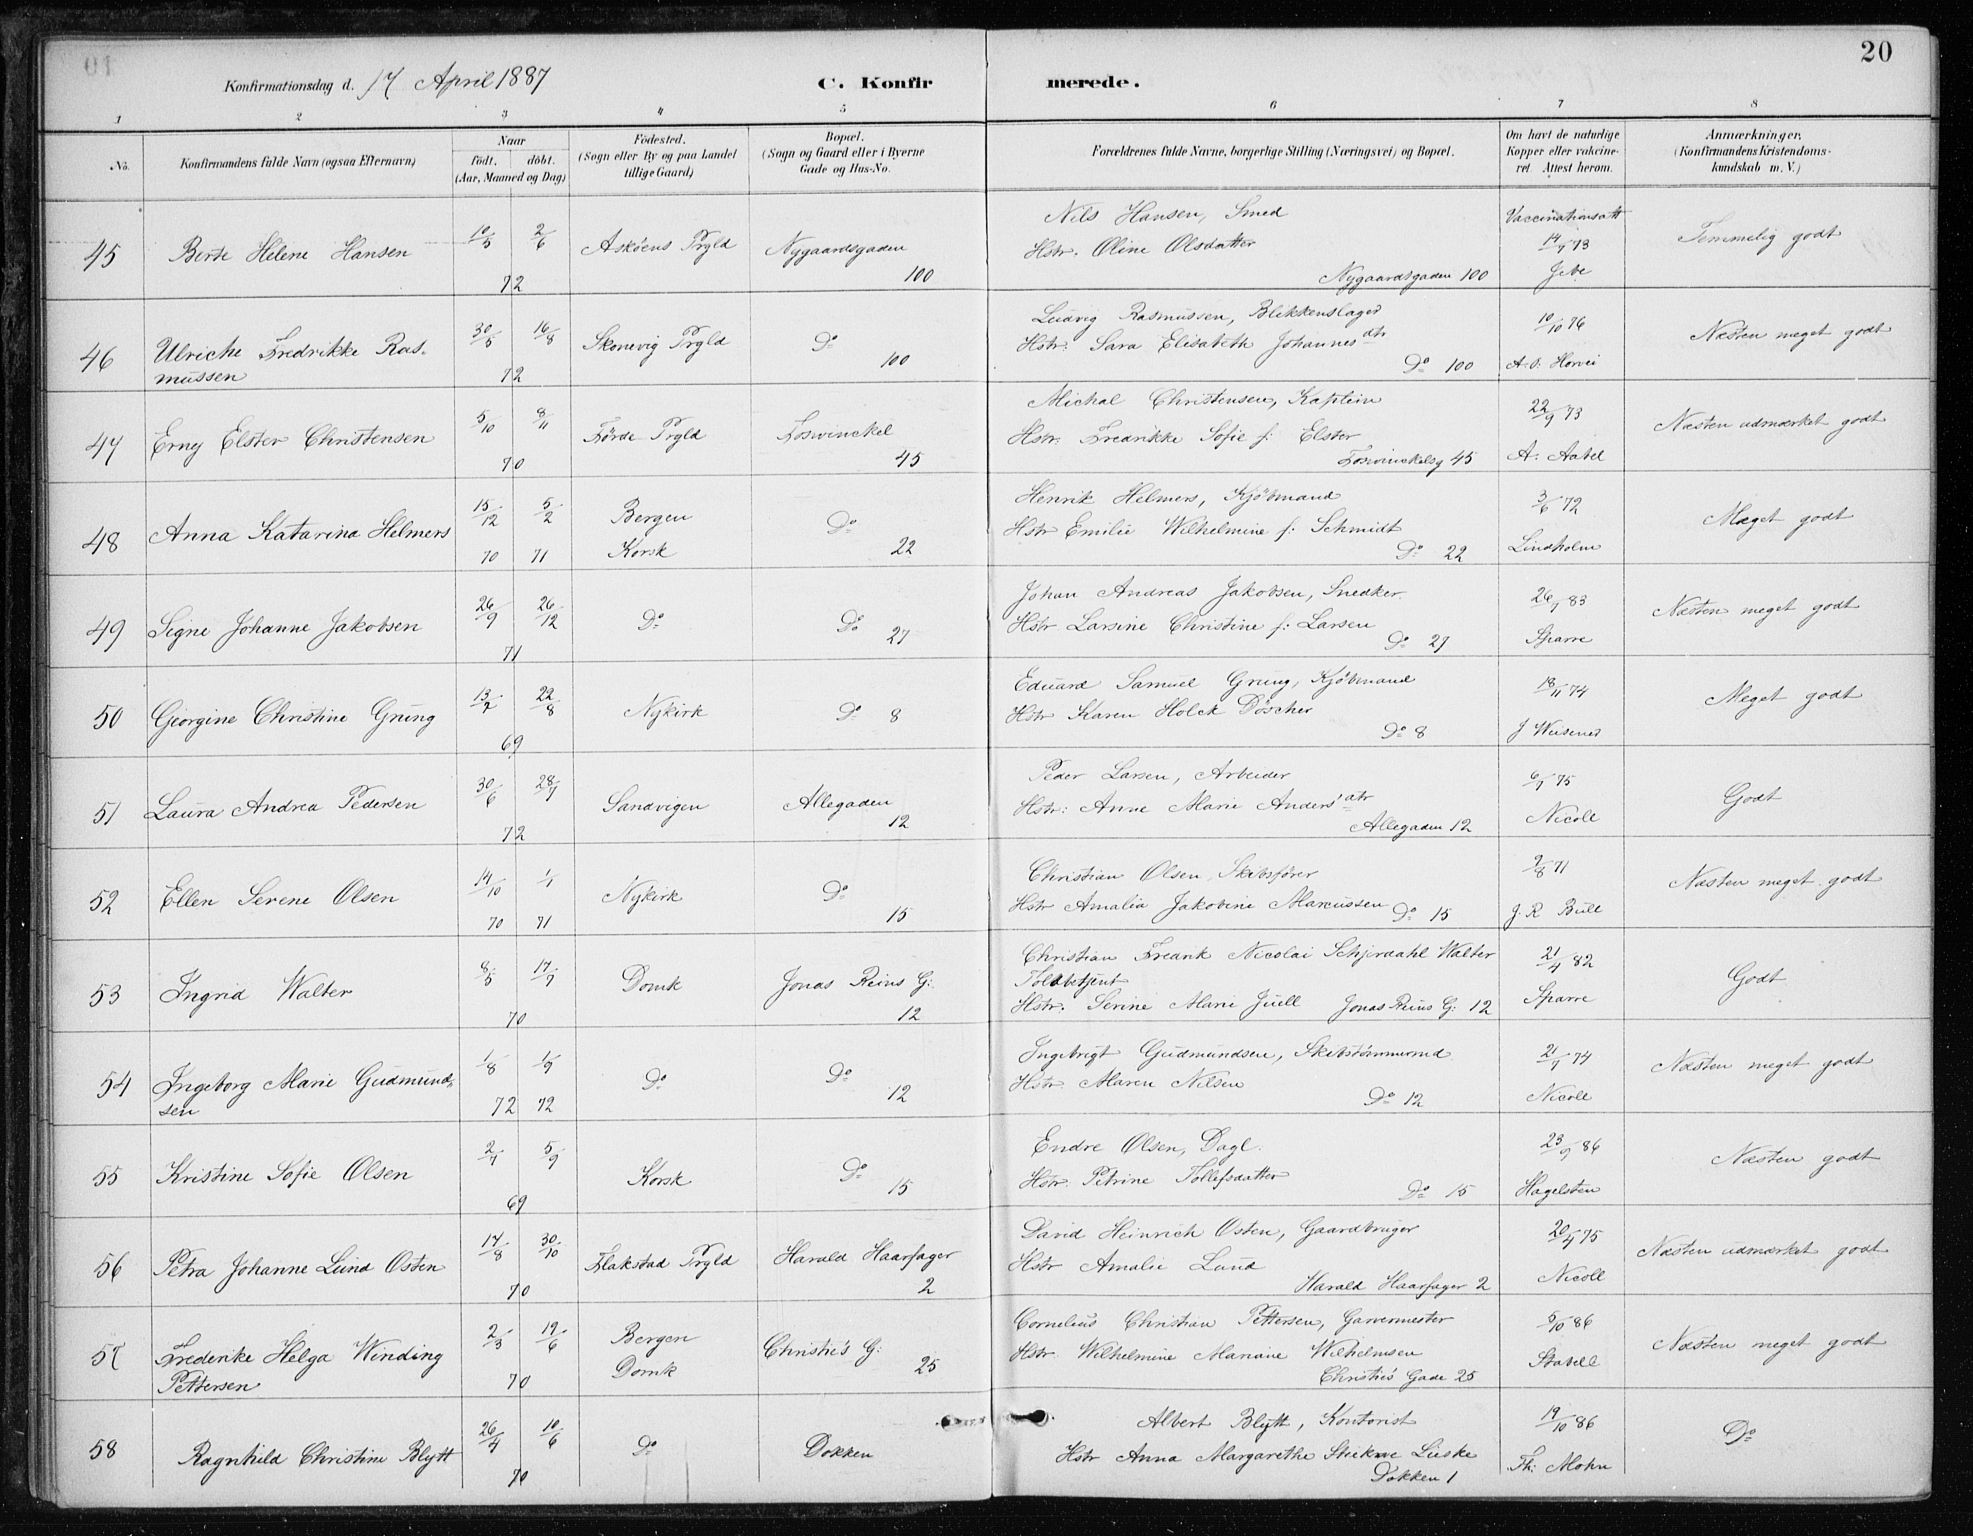 20
Konfirmationsdag d. 17 April 1887 C. Konfirmerede.
1 2 3 4 5 6 7 8
No. Konfirmandens fulde Navn (ogsaa Efternavn) Naar födt. döbt. (Aar, Maaned og Dag) Födested. (Sogn eller By og paa Landet tillige Gaard) Bopæl. (Sogn og Gaard eller i Byerne Gade og Hus-No. Forældrenes fulde Navne, borgerlige Stilling (Næringsvei) og Bopæl. Om havt de naturlige Kopper eller vakcineret Attest herom. Anmærkninger. (Konfirmandens Kristendomskundskab m. V.)
45 Berte Helene Hansen 10/5 2/6 72 Askøens Prgld Nygaardsgaden 100
Nils Hansen, Smed
Hstr. Oline Olsdatter
Nygaardsgaden 100
Vaccinationsatt 14/7 73 Jebe
Temmelig godt
46 Ulriche Fredrikke Rasmussen 30/5 16/8 72 Skonevig Prgld Do 100
Ludvig Rasmussen, Blikkenslager
Hstr. Sara Elisabeth Johannesdtr
Do 100
10/10 76 A. O. Horvei
Næsten meget godt
47 Erny Elster Christensen 5/10 8/11 70 Förde Prgld Foswinckel 45
Michal Christensen, Kaptein
Hstr. Fredrikke Sofie f: Elster
Foswinckelsg 45
22/9 73 A. Aabel
Næsten udmærket godt
48 Anna Katarina Helmers 15/12 5/2 70 71 Bergen Korsk Do 22
Henrik Helmers, Kjöbmand
Hstr Emilie Wilhelmine f: Schmidt
Do 22
3/6 72 Lindholm
Meget godt
49 Signe Johanne Jakobsen 26/9 26/12 71 Do Do 27
Johan Andreas Jakobsen, Snedker
Hstr Larsine Christine f: Larsen
Do 27
26/7 83 Sparre
Næsten meget godt
50 Georgine Christine Grung 13/2 22/8 69 Nykirk Do 8
Eduard Samuel Grung, Kjöbmand
Hstr Karen Holck Döscher
Do 8
18/11 74 J Wiesener
Meget godt
51 Laura Andrea Pedersen 30/6 28/7 72 Sandvigen Allegaden 12
Peder Larsen, Arbeider
Hstr: Anne Marie Anders'dtr
Allegaden 12
6/7 75 Nicoll
Godt
52 Ellen Serene Olsen 14/10 1/1 70 71 Nykirk Do 15
Christian Olsen, Skibsförer
Hstr Amalia Jakobine Marcussen Do 15
2/8 71 J. R Bull
Næsten meget godt
53 Ingrid Walter 8/5 17/7 70 Domk Jonas Reins G: 12
Christian Fredrik Nicolai Schjerdahl Walter
Toldbetjent
Hstr. Serine Marie Juell Jonas Reins G: 12
21/4 82 Sparre
Godt
54 Ingeborg Marie Gudmundsen 1/8 1/9 72 72 Do Do 12
Ingebrigt Gudmundsen, Skibstömmermd
Hstr. Maren Nilsen
Do 12
21/7 74 Nicoll
Næsten meget godt
55 Kristine Sofie Olsen 2/7 5/9 69 Korsk Do 15
Endre Olsen, Dagl.
Hstr. Petrine Tollefsdatter
Do 15
23/9 86 Hagelsten
Næsten godt
56 Petra Johanne Lund Osten 14/8 30/10 70 Flakstad Prgld Harald Haarfager 2
David Heinrich Osten, Gaardbruger
Hstr Amalie Lund
Harald Haarfager 2
20/7 75 Nicoll
Næsten udmærket godt
57 Frederike Helga Winding Pettersen 2/3 19/6 70 Bergen Domk Christies G: 25
Cornelius Christian Pettersen, Garvermester
Hstr. Wilhelmine Mariane Wilhelmsen
Christies Gade 25
5/10 86 Stabell
Næsten meget godt
58 Ragnhild Christine Blytt 26/4 10/6 70 Do Dokken
Albert Blytt, Kontorist
Hstr Anna Margarethe Lieske
Dokken 1
19/10 86 Th: Mohn
Do